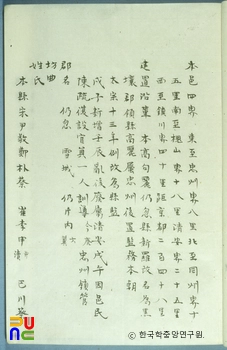 本邑四界 東至忠州界八里北至同州界十
五里南至槐山界十八里清安界二十五里
西至鎭川界四十里距京都二百四十八里
建置沿革 本高句麗仍忽縣新羅改名爲黑
壤郡領縣高麗屬忠州後置監務本朝
太宗十三年例改爲縣監
戊子新增壬辰亂後屬清安戊午因邑民
陳疏復設官員一人訓導今廢忠州鎭管
郡名 仍忽 雪城 仍斤內
坊曲
姓氏
本縣宗尹敬鄭朴蔡 崔李申 巴川
한국학중앙연구원